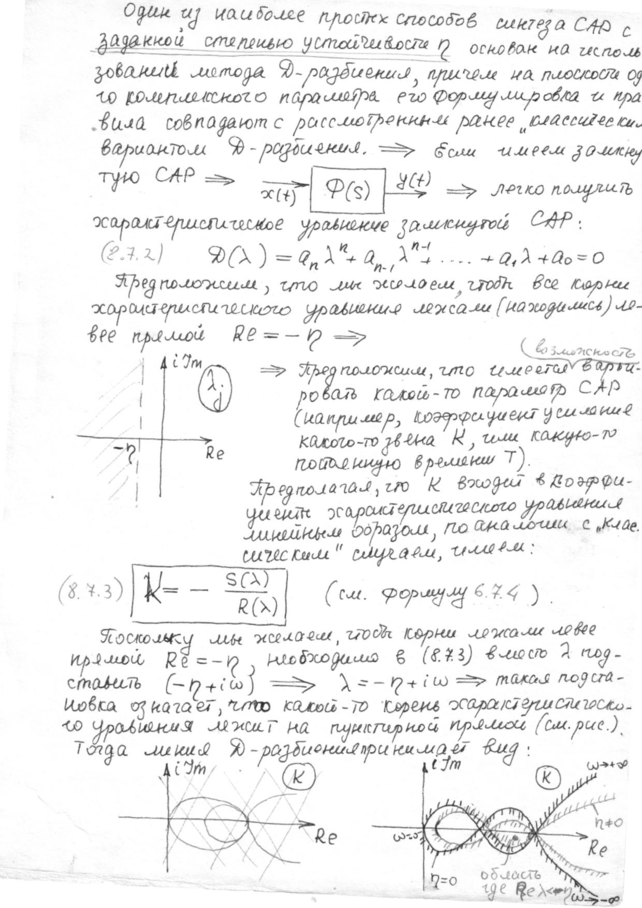 Один из наиболее простых способов синтеза САР с
заданной степенью устойчивости η основан на исполь-
зовании метода Д-разбиения, причем на плоскости од
го комплексного параметра его формулировка и пра
вила совпадают с рассмотренным ранее „классически
вариантом Д-разбиения. ⟹ Если имеем замкну
тую САР ⟹ x(t) Φ(s) y(t) ⟹ легко получить
характеристическое уравнение замкнутой САР:
(8.7.2) D(λ) = aₙλⁿ + aₙ₋₁λⁿ⁻¹ + .... + a₁λ + a₀ = 0
Предположим, что мы желаем, чтобы все корни
характеристического уравнения лежали (находились) ле-
вее прямой Re = -η ⟹
i Im
λj
-η
Re
возможность
⇒ Предположим, что имеется варьи-
ровать какой-то параметр САР
(например, коэффициент усиления
какого-то звена К, или какую-то
постоянную времени Т).
Предполагая, что К входит в коэффи-
циенты характеристического уравнения
линейным образом, по аналогии с „клас
сическим" случаем, имеем:
(8.7.3) K = - S(λ)/R(λ) (см. формулу 6.7.4).
Поскольку мы желаем, чтобы корни лежали левее
прямой Re = -η, необходимо в (8.7.3) вместо λ под-
ставить (-η + iω) ⟹ λ = -η + iω ⟹ такая подста-
новка означает, что какой-то корень характеристическо-
го уравнения лежит на пунктирной прямой (см. рис.).
Тогда линия Д-разбиения принимает вид:
i Im
K
Re
i Im
K
ω→+∞
η≠0
ω=0
Re
η=0
область
где Reλ<-η
ω→-∞